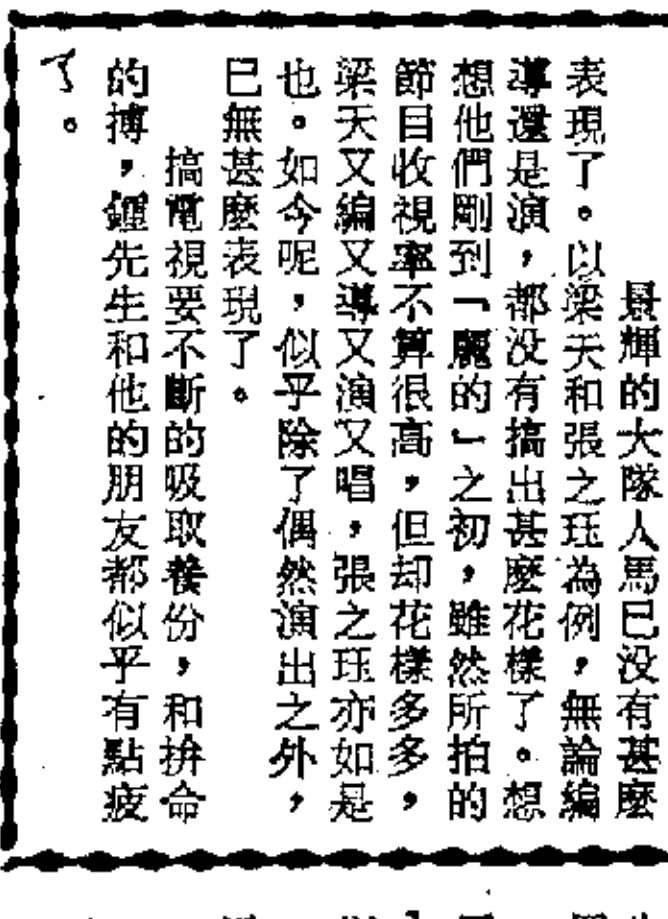 景輝的大隊人馬已没有甚麼
表現了。以梁天和張之珏為例，無論編
導還是演，都没有搞出甚麼花樣了。想
想他們剛到「麗的」之初，雖然所拍的
節目收視率不算很高，但却花樣多多，
梁天又編又導又演又唱，張之珏亦如是
也。如今呢，似乎除了偶然演出之外，
已無甚麼表現了。
搞電視要不斷的吸取養份，和拚命
的搏，鍾先生和他的朋友都似乎有點疲
了。